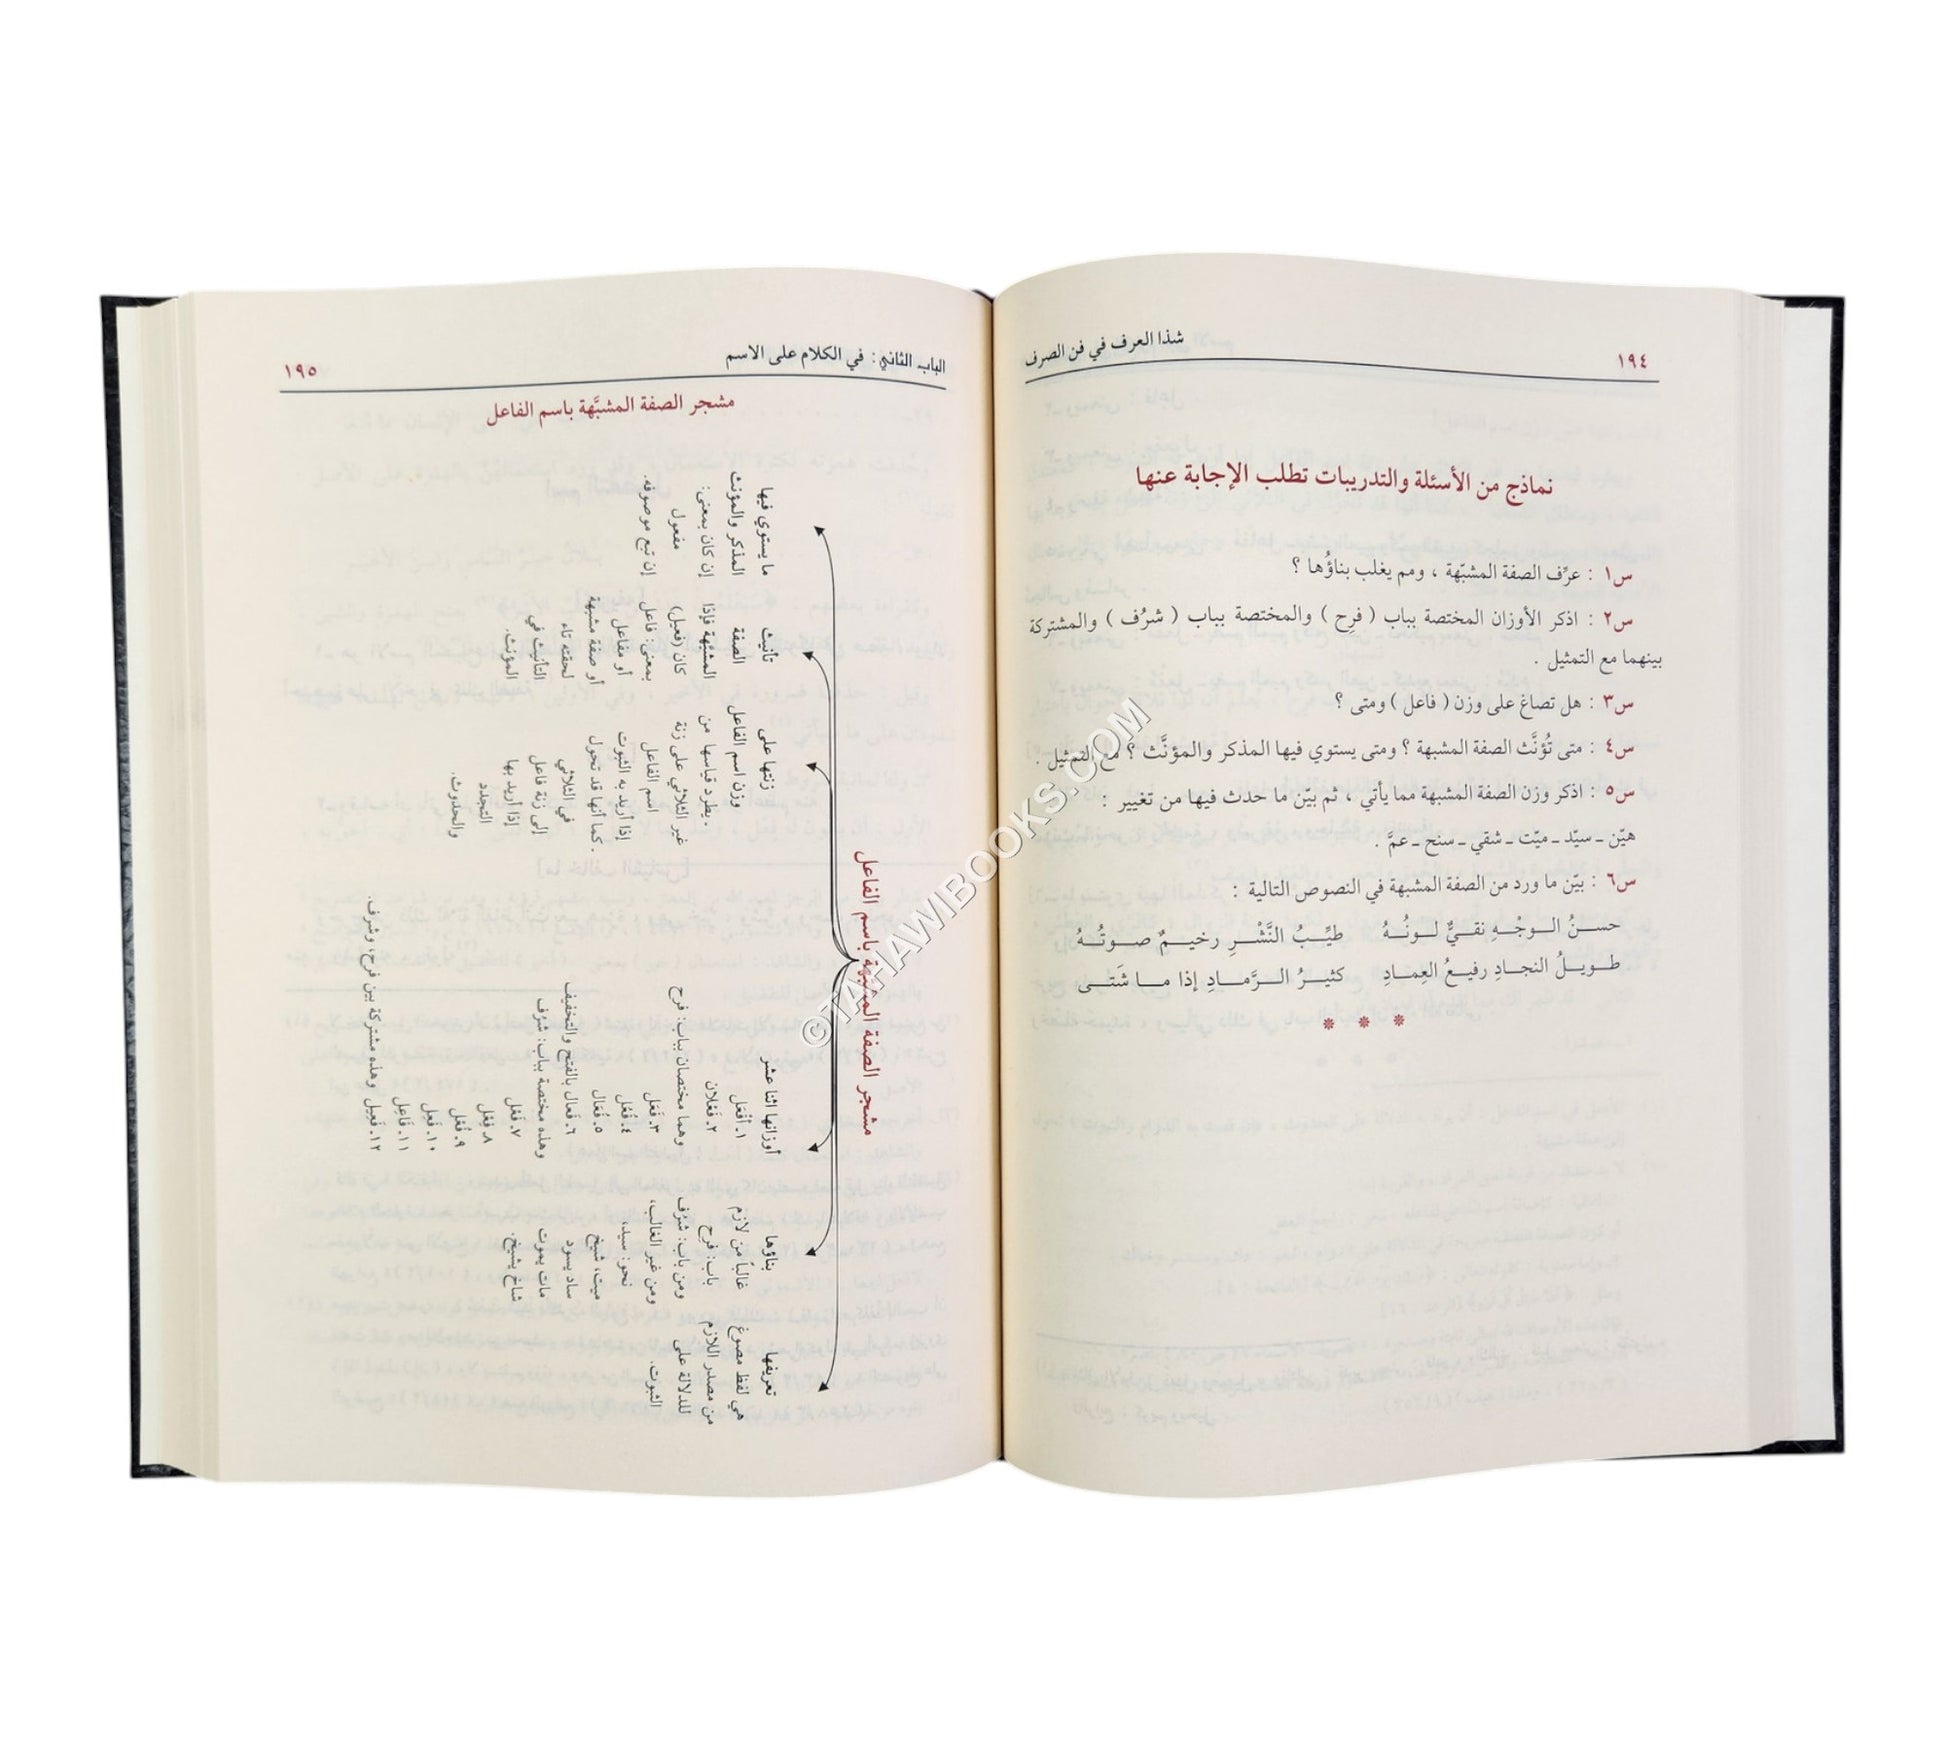 ١٩٤
شذا العرف في فن الصرف
نماذج من الأسئلة والتدريبات تطلب الإجابة عنها
س١ : عرِّف الصفة المشبّهة ، ومم يغلب بناؤُها ؟
س٢ : اذكر الأوزان المختصة بباب ( فرِح ) والمختصة بباب ( شرُف ) والمشتركة
بينهما مع التمثيل .
س٣ : هل تصاغ على وزن ( فاعل ) ومتى ؟
س٤ : متى تُؤنَّث الصفة المشبهة ؟ ومتى يستوي فيها المذكر والمؤنَّث ؟ مع التمثيل .
س٥ : اذكر وزن الصفة المشبهة مما يأتي ، ثم بيّن ما حدث فيها من تغيير :
هيّن ـ سيّد ـ ميّت ـ شقي ـ سنح ـ عمَّ .
س٦ : بيّن ما ورد من الصفة المشبهة في النصوص التالية :
حسنُ الـوجْـهِ نقـيٌّ لـونُـهُ طيِّـبُ النَّشْـرِ رخيـمٌ صـوتُـهُ
طـويـلُ النجـادِ رفيـعُ العِمـادِ كثيـرُ الـرَّمـادِ إذا مـا شَتَـى
* * *
الباب الثاني : في الكلام على الاسم
١٩٥
مشجر الصفة المشبَّهة باسم الفاعل
مشجر الصفة المشبَّهة باسم الفاعل
تعريفها
هي لفظ مصوغ
من مصدر اللازم
للدلالة على
الثبوت.
بناؤها
غالباً من لازم
باب: فرح
ومن باب: شرُف
ومن غير الغالب،
نحو: سيد،
ميت، شيخ
ساد يسود
مات يموت
شاخ يشيخ.
أوزانها اثنا عشر
١ـ أفْعَل
٢ـ فَعْلان
وهما مختصان بباب: فرح
٣ـ فَعَل
٤ـ فُعُل
٥ـ فُعَال
٦ـ فَعال بالفتح والتخفيف
وهذه مختصة بباب: شرُف
٧ـ فَعْل
٨ـ فِعْل
٩ـ فُعْل
١٠ـ فَعِل
١١ـ فَاعِل
١٢ـ فَعِيل وهذه مشتركة بين فرح، وشرف.
زنتها على
وزن اسم الفاعل
ـ يطرد قياسها من
غير الثلاثي على زنة
اسم الفاعل
إذا أريد به الثبوت
ـ كما أنها قد تحول
في الثلاثي
إلى زنة فاعل
إذا أريد بها
التجدد
والحدوث.
تأنيث
الصفة
المشبَّهة فإذا
كان (فعيل)
بمعنى: فاعل
أو مفاعل
أو صفة مشبهة
لحقته تاء
التأنيث في
المؤنث.
ما يستوي فيها
المذكر والمؤنث
إن كان بمعنى:
مفعول
إن تبع موصوفه.
©TAHAWIBOOKS.COM